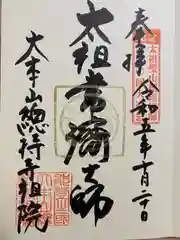 奉拝
令和五年十月二十日
太祖常済大師
大本山總持寺祖院